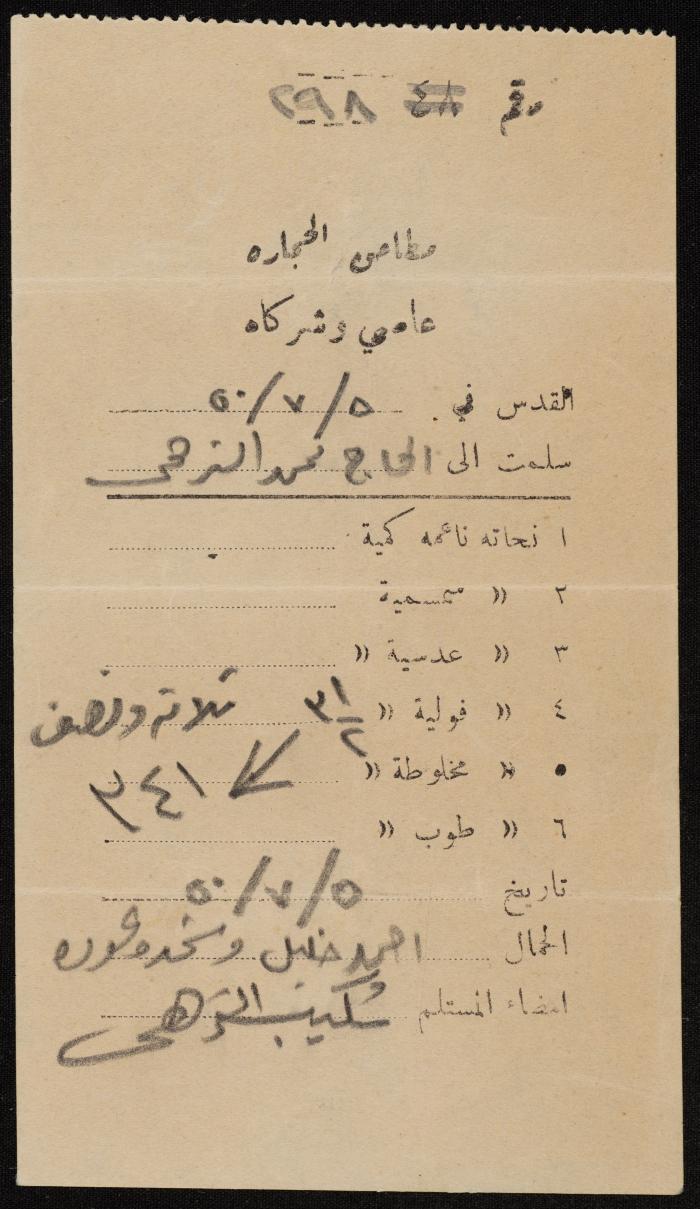 رقم ٤٨ ٢٩٨
مطاحن الحجاره
عاصي وشركاه
القدس في ٥/٧/٥٠
سلمت الى الحاج محمد الترهي
١ نحاته ناعمه كمية
٢ » سمسمية
٣ » عدسية »
٤ » فولية » ٣١/٢ ثلاثة ونصف
٥ » مخلوطة » ٣٤١
٦ » طوب »
تاريخ ٥/٧/٥٠
الحمال احمد خليل
امضاء المستلم شكيب الترهي